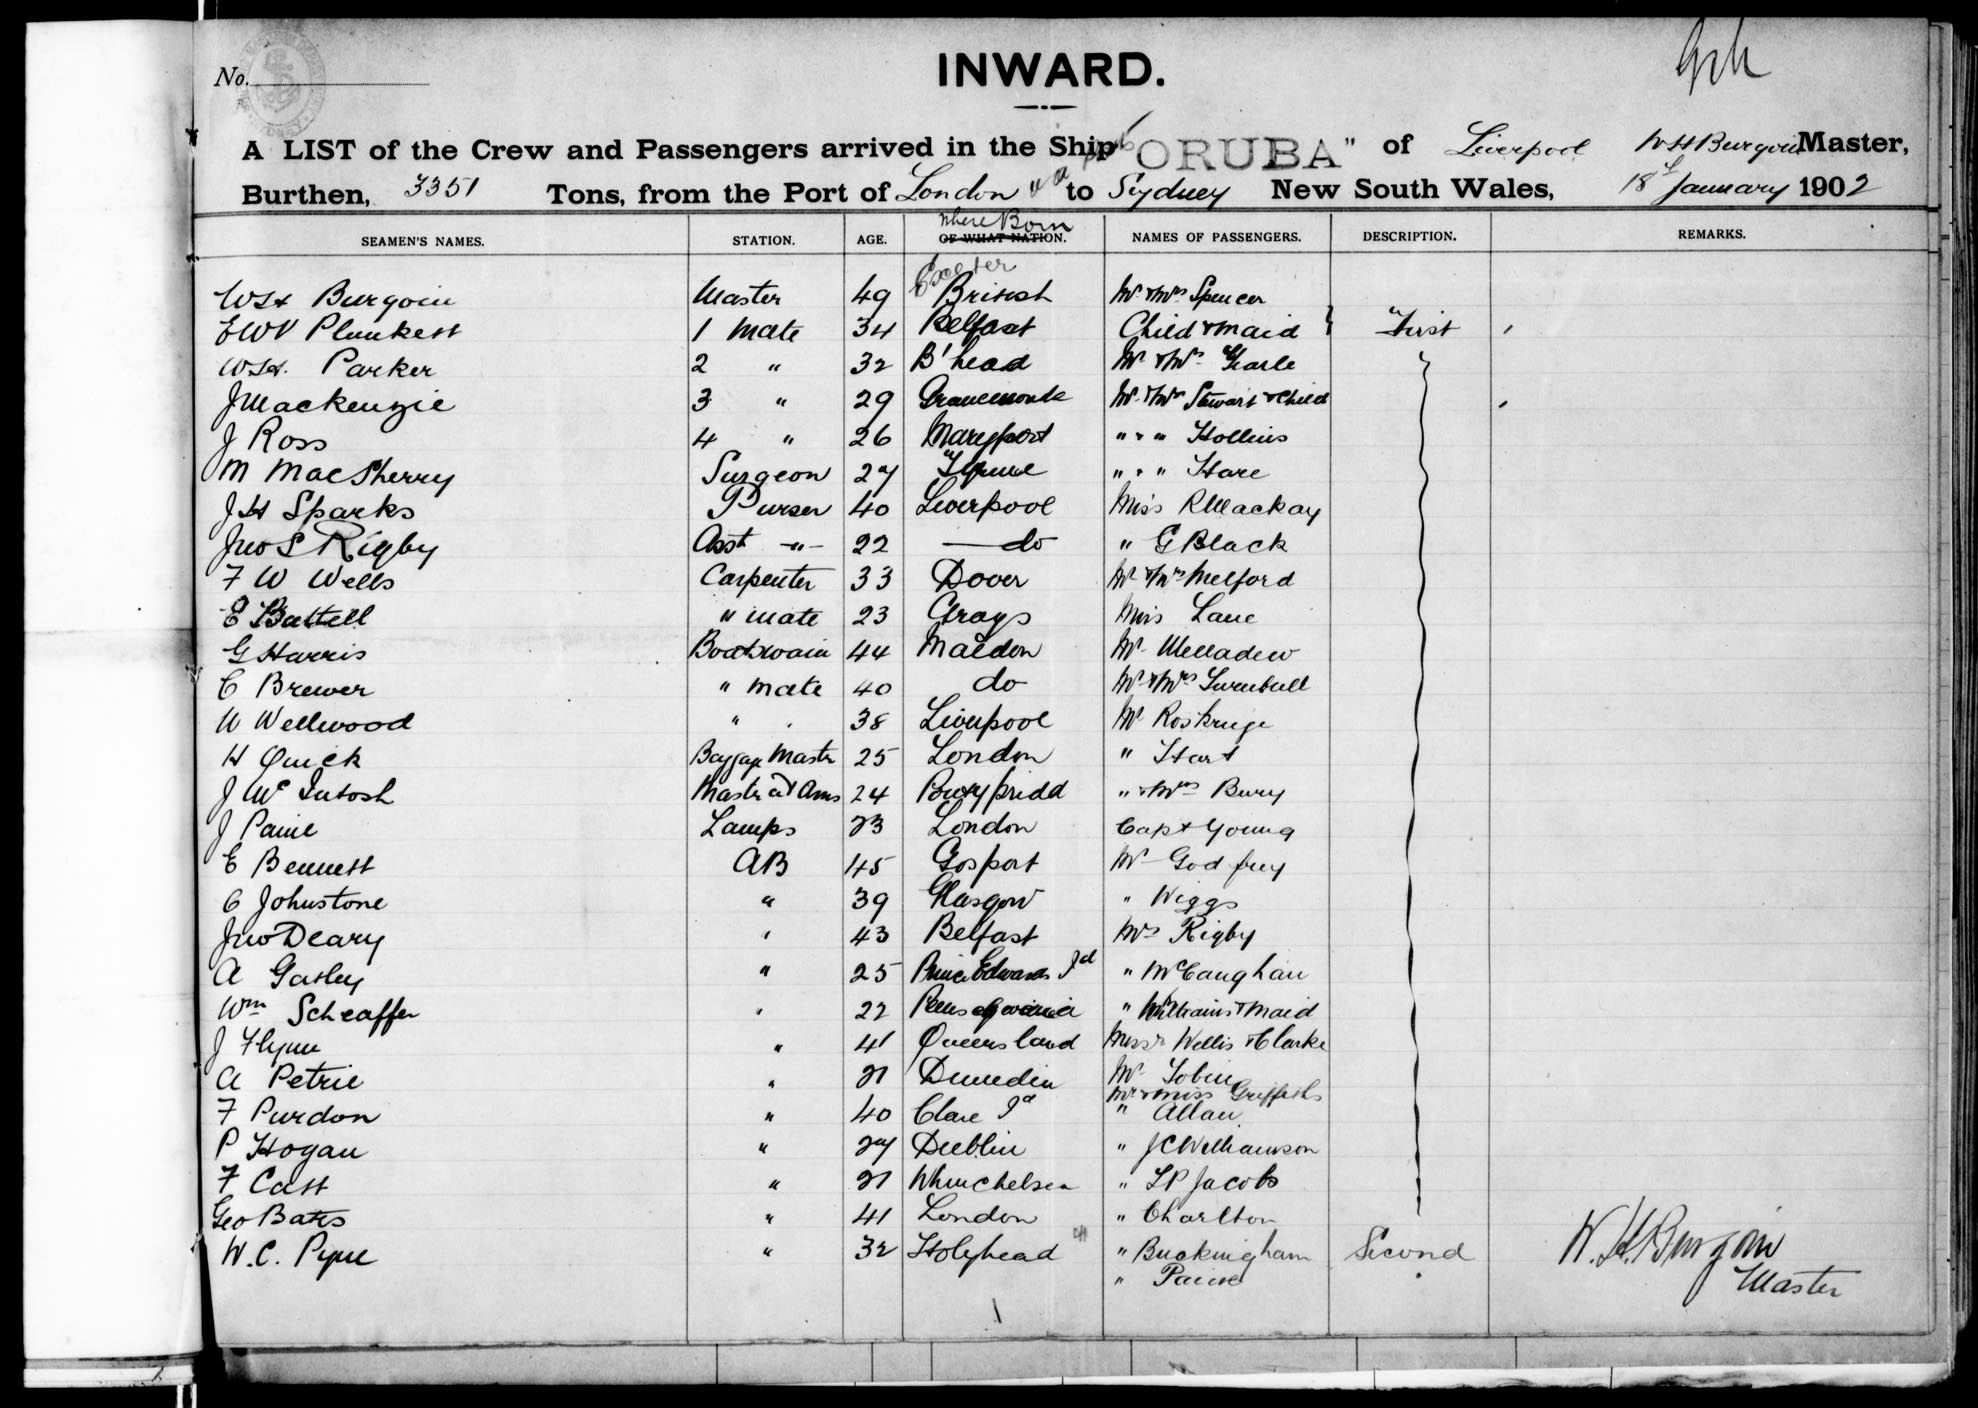 No.
INWARD.
A LIST of the Crew and Passengers arrived in the Ship "ORUBA" of Liverpool W H Burgoin Master,
Burthen, 3351 Tons, from the Port of London to Sydney New South Wales, 18th January 1902
SEAMEN'S NAMES. STATION. AGE. OF WHAT NATION. Where Born NAMES OF PASSENGERS. DESCRIPTION. REMARKS.
Exeter
WH Burgoin Master 49 British Mr & Mrs Spencer
EWV Plunkett 1 Mate 34 Belfast Child & maid } First
WH. Parker 2 " 32 B'head Mr & Mrs Gearle
J Mackenzie 3 " 29 Mr & Mrs Stewart & Child
J Ross 4 " 26 Maryport " " " Hollins
M MacSherry Surgeon 27 " " " Hare
JH Sparks Purser 40 Liverpool Miss R Mackay
Jno S Rigby Asst -"- 22 — do " G Black
F W Wells Carpenter 33 Dover Mr & Mrs Melford
E Battell " mate 23 Grays Miss Lane
G Harris Boatswain 44 Maldon Mr Melladew
C Brewer " mate 40 do Mr & Mrs Turnbull
W Wellwood " 38 Liverpool Mr Roskruge
H Quick Baggage Master 25 London " Hart
J McIntosh Master at Arms 24 " & Mrs Bury
J Paine Lamps 23 London Capt Young
E Bennett AB 45 Gosport Mr Godfrey
C Johnstone " 39 Glasgow " Wiggs
Jno Deary " 43 Belfast Mrs Rigby
A Gatley " 25 Prince Edwards Id " McCaughan
Wm Scheaffer " 22 " Williams & Maid
J Flynn " 41 Queensland Misses Wellis & Clarke
A Petrie " 21 Dunedin Mr Tobin
Mr & Miss Griffiths
F Purdon " 40 Clare Id " Allan
P Hogan " 27 Dublin " J C Williamson
F Catt " 21 Whinchelsea " L P Jacobs
Geo Bates " 41 London " Charlton
W.C. Pyne " 32 Holyhead " Buckingham Second
" Paine
W. H. Burgoin
Master